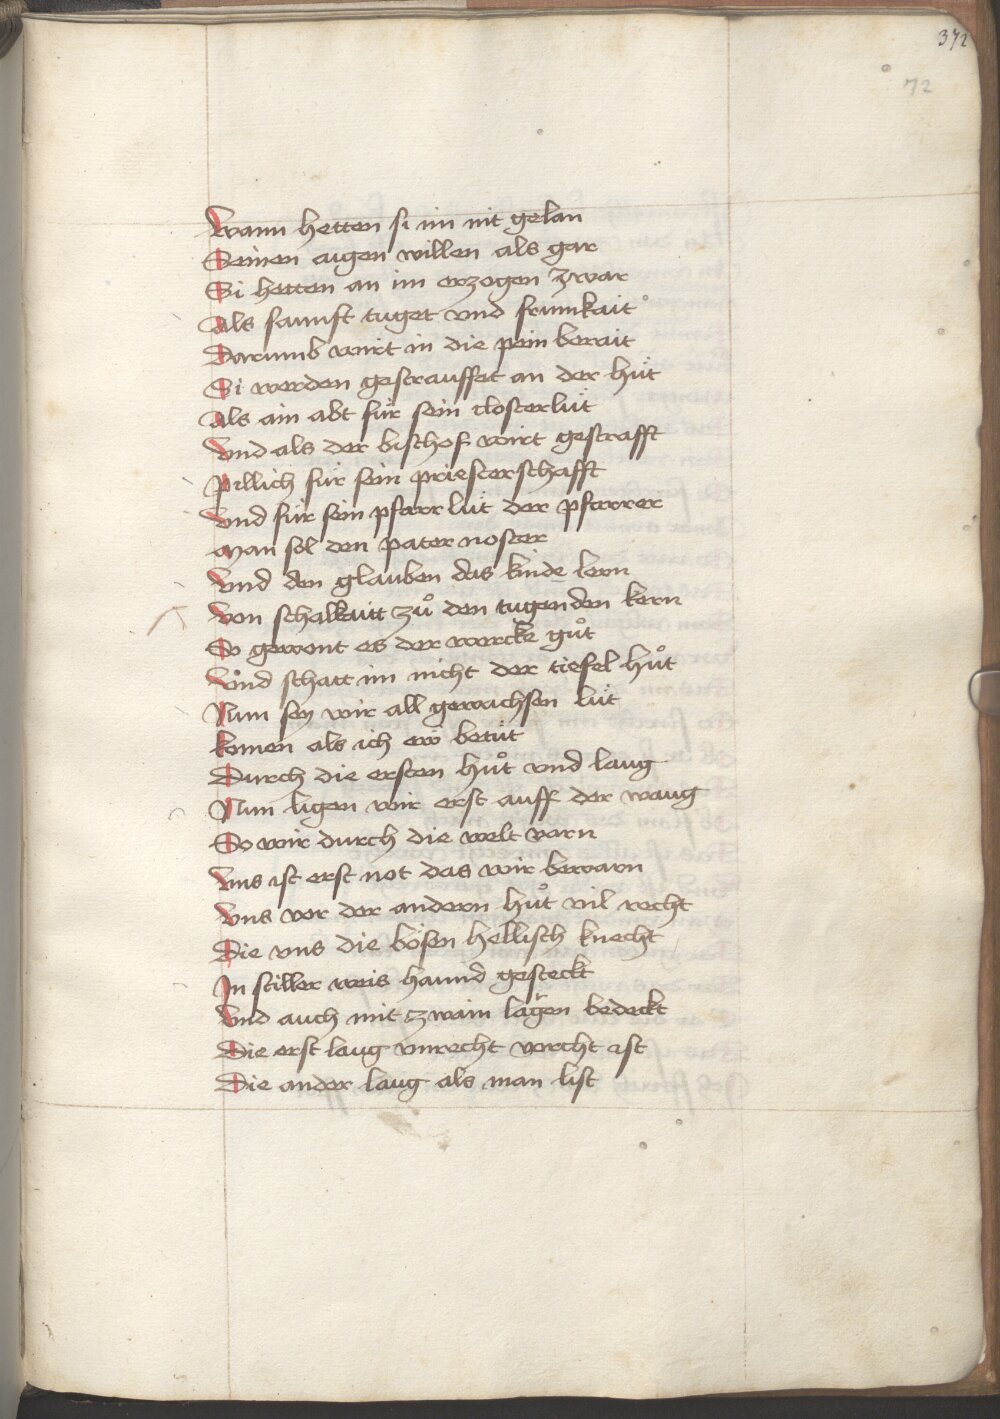 372
72
Wann hetten si im nit gelan
Seinen aigen willen als gar
Si hetten an im erzogen zwar
Als sainft tuget vnd frumkait
Darumb wirt in die pein berait
Si werden gestrauffet an der hüt
Als ain abt für sein closterlüt
Vnd als der bischof wirt gestrafft
Pillich für sein priesterschafft
Vnd für sein pfarr lüt der pfarrer
Man sol den pater noster
Vnd den glauben das kinde lern
Von schalkaitt zuͦ den tugenden kern
So gewont es der wercke guͦt
Vnd schatt im nicht der tiefel huͦt
Nun sey wir all gewachsen lüt
komen als ich ew betüt
Durch die ersten huͦt vnd laug
Nun ligen wir erst auff der waug
So wir durch die welt varn
Vns ist erst not das wir bewarn
Vns vor der andern huͦt vil recht
Die vns die bösen hellisch knecht
In stiller weis haund gesteckt
Vnd auch mit zwain lägen bedeckt
Die erst laug vnrecht vorcht ist
Die ander laug als man list